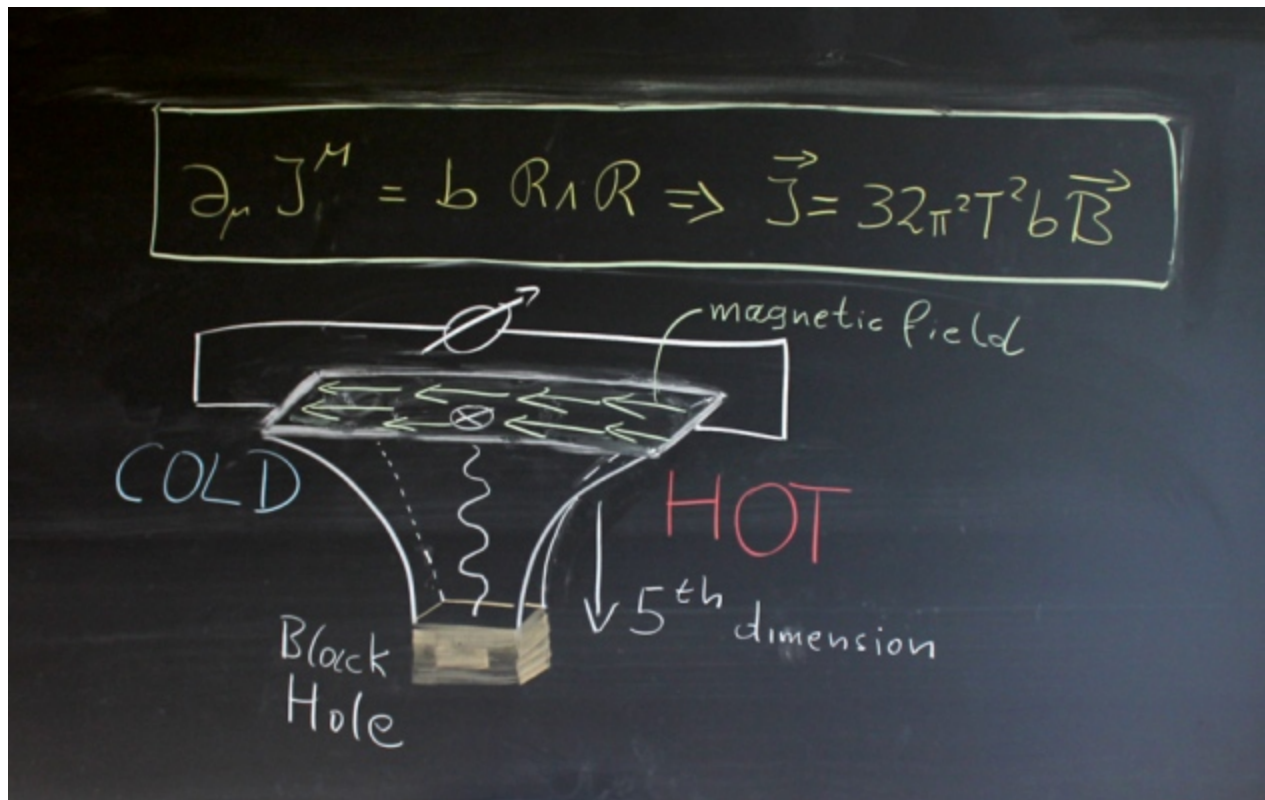 ∂_μ J^μ = b R∧R ⇒ J⃗ = 32π²T²b B⃗
magnetic field
COLD
HOT
5th dimension
Black
Hole